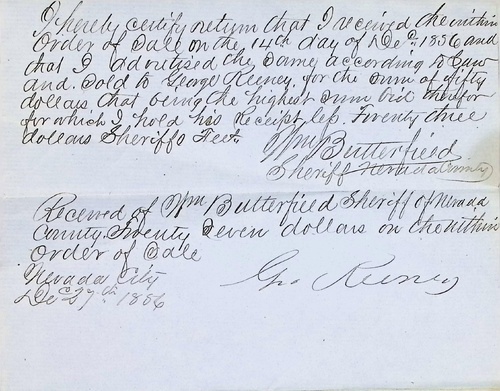 I hereby certify return that I received the within
Order of Sale on the 14th day of Dec. 1856 and
that I advertised the same according to Law
and Sold to George Keeney for the sum of fifty
dollars, that being the highest sum bid therefor
for which I hold his Receipt less twenty three
dollars Sheriffs Fees.
Wm Butterfield
Sheriff Nevada County
Received of Wm Butterfield Sheriff of Nevada
County Twenty Seven dollars on the within
Order of Sale
Nevada City
Dec 27th 1856
Geo Keeney